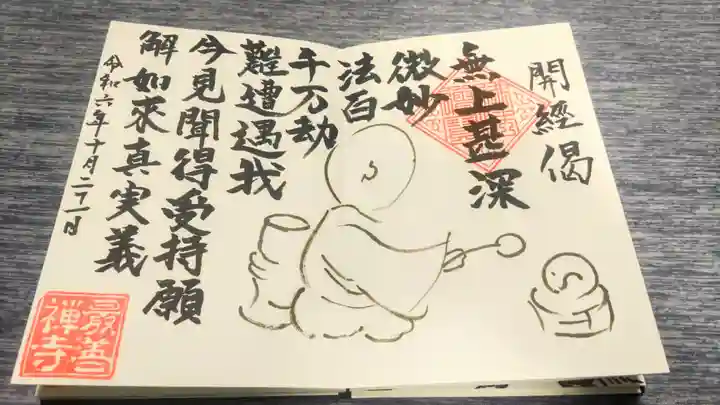 開經偈
無上甚深
微妙
法百
千万劫
難遭遇我
今見聞得受持願
解如来真実義
令和六年十月二十一日
最善
禅寺